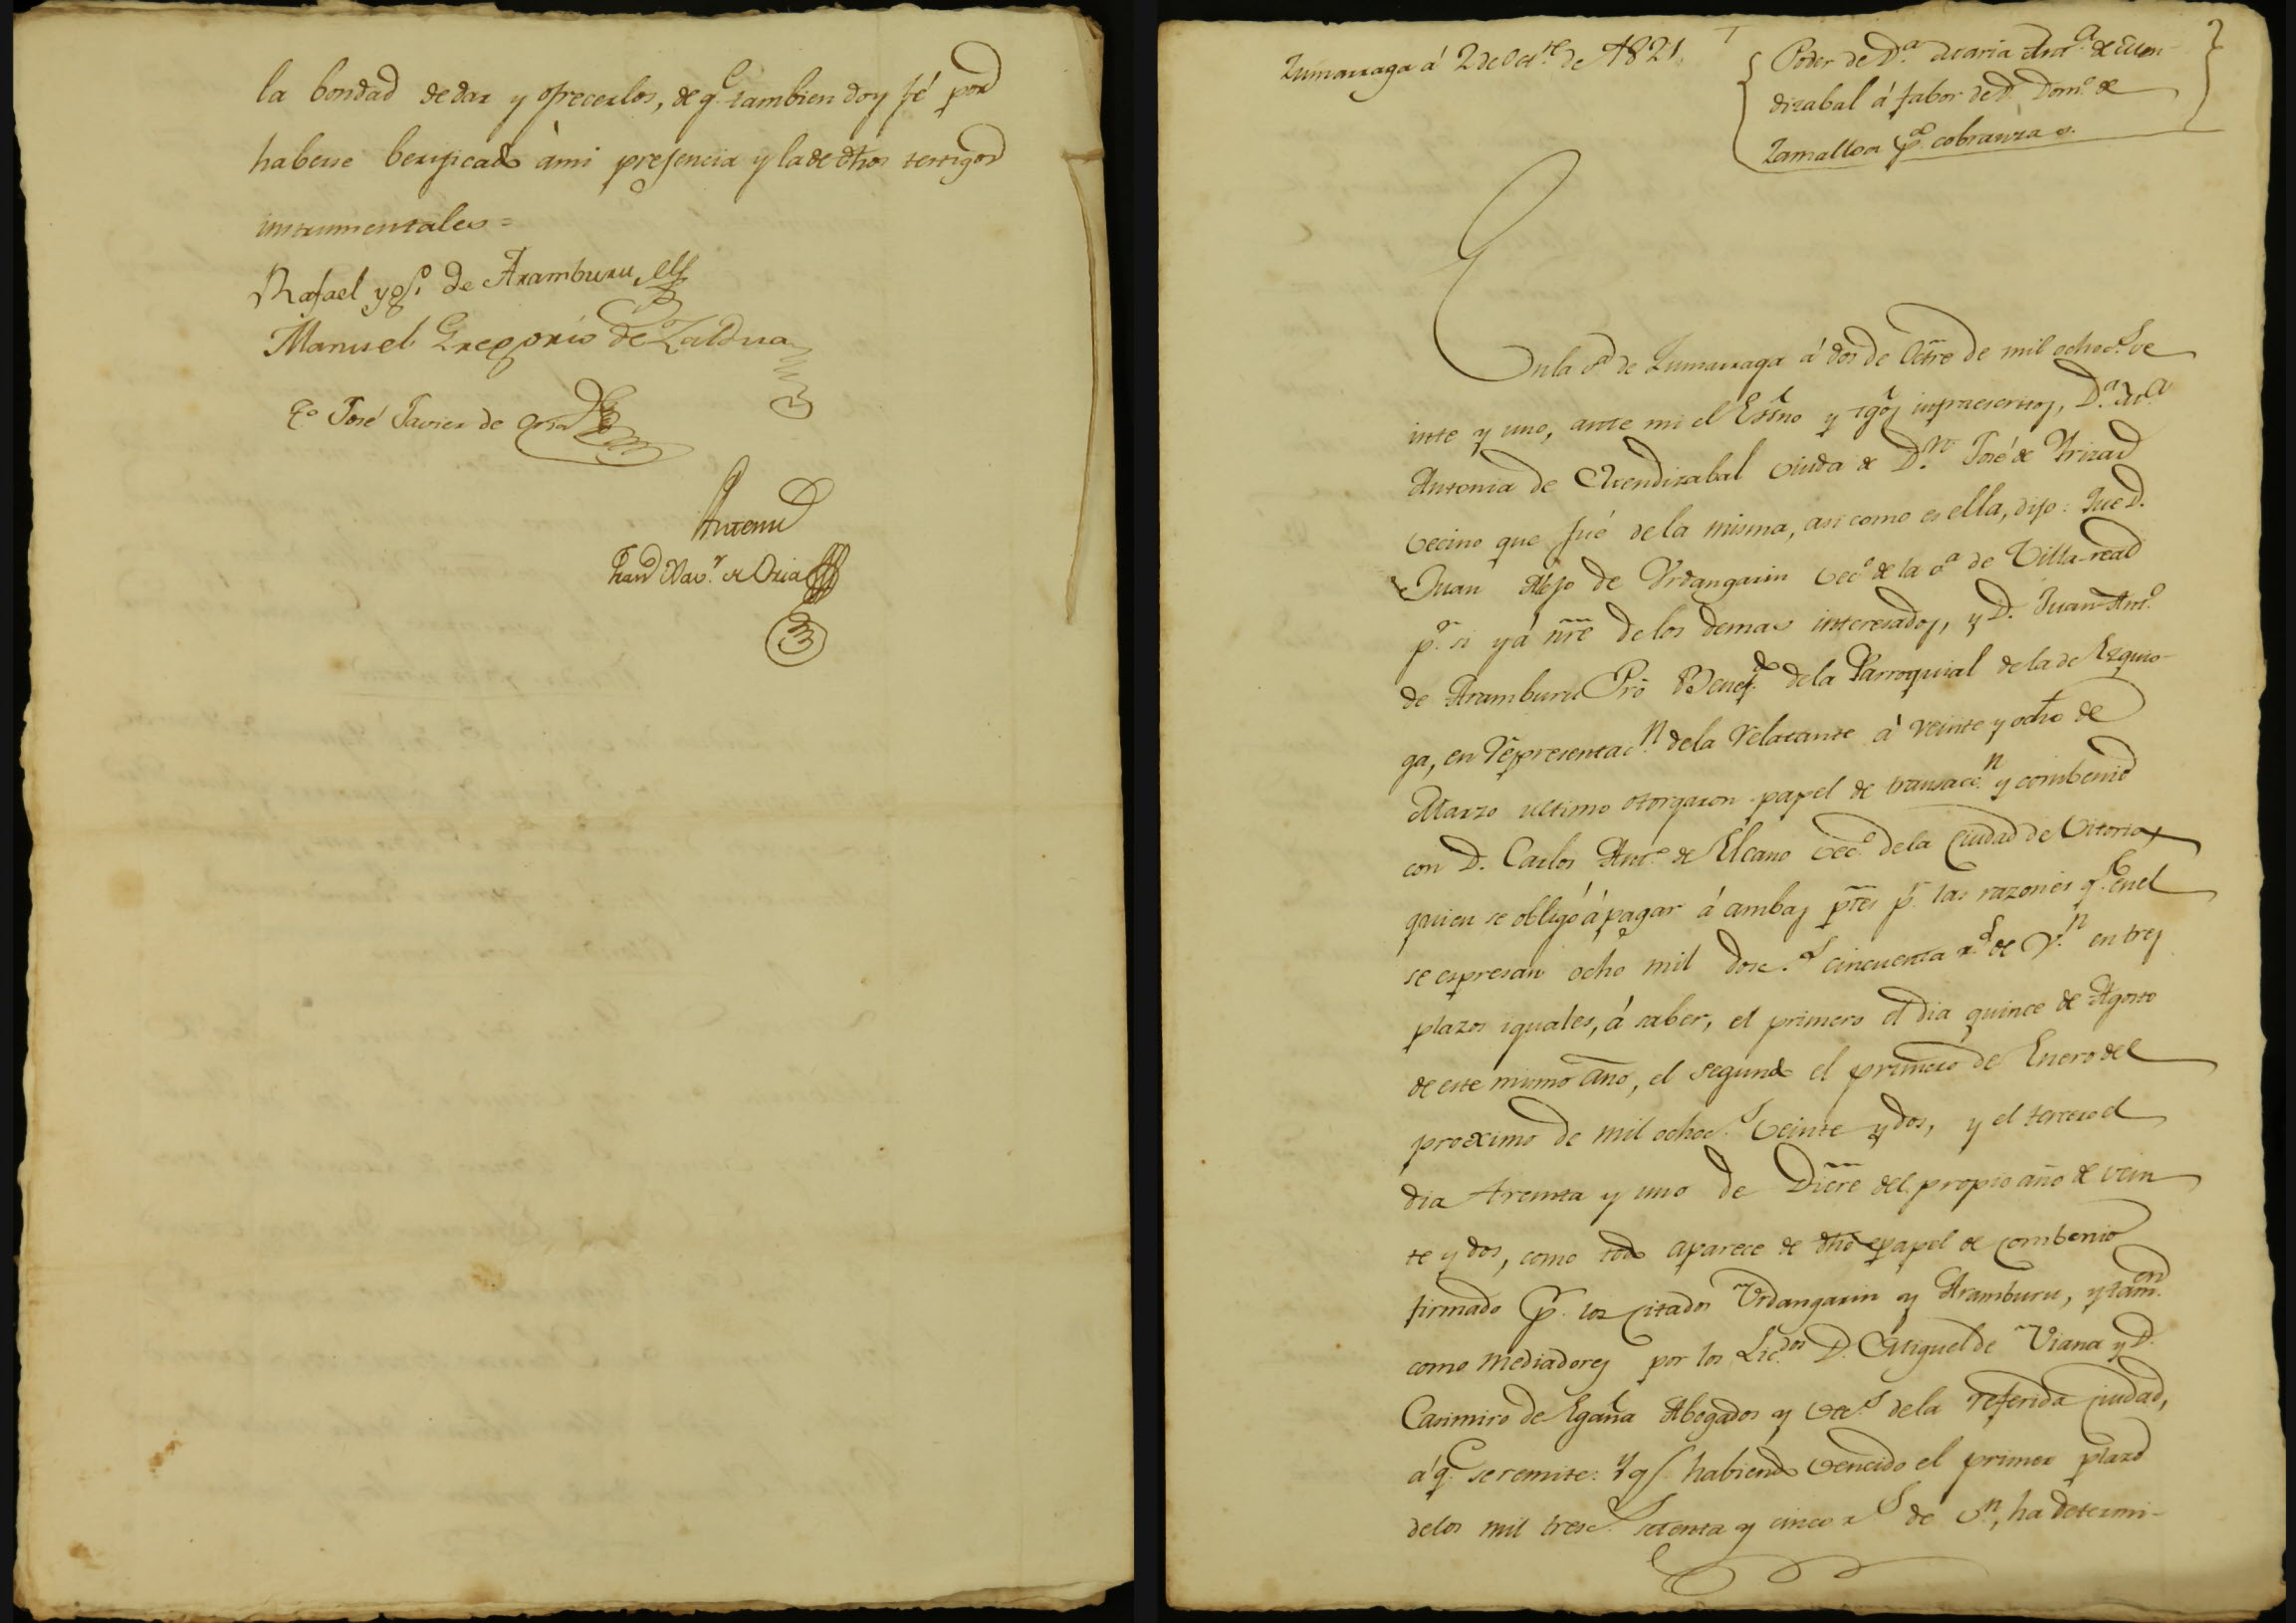 la bondad de dar y ofrecerlos, de q.e tambien doy fé por
haberse berificado à mi presencia y la de dhos testigos
instrumentales =
Rafael Ygn.o de Aramburu
Manuel Gregorio de Zaldua
T.o José Javier de Oria
Antemi
Fran.co Xav.r de Oria
Zumarraga á 2 de Oct.re de 1821.
Poder de D.a Maria Ant.a de Men-
dizabal á fabor de D. Dom.o de
Zamalloa p.a cobranzas.
En la v.a de Zumarraga á dos de Octre de mil ochoc.s ve
inte y uno, ante mi el Essno y tgos infraescritos, D.a M.a
Antonia de Mendizabal viuda de D.n José de Yrizar
vecino que fué de la misma, asi como es ella, dijo: Que D.
Juan Alejo de Urdangarin vec.o de la v.a de Villa-real
p.r si y á nre de los demas interesados, y D. Juan Ant.o
de Aramburu Pro Benef.do de la Parroquial de la de Ezquio-
ga, en representac.n de la relatante à veinte y ocho de
Marzo ultimo otorgaron papel de transacc.n y combenio
con D. Carlos Ant.o de Elcano vec.o de la Ciudad de Vitoria,
quien se obligó á pagar á ambas ptes p.r las razones q.e en el
se espresan ocho mil dosc.s cincuenta r.s de v.n en tres
plazos iguales, á saber, el primero el dia quince de Agosto
de este mismo año, el segundo el primero de Enero del
proximo de mil ochoc.s veinte y dos, y el tercero el
dia treinta y uno de Dicre del propio año de vein
te y dos, como todo aparece de dho papel de combenio
firmado p.r los citados Urdangarin y Aramburu, y tam.en
como mediadores por los Lic.dos D. Miguel de Viana y D.
Casimiro de Egaña Abogados y vec.s de la referida ciudad,
á q.e se remite: Y q.e habiendo vencido el primer plazo
de los mil tresc.s setenta y cinco r.s de v.n, ha determi-